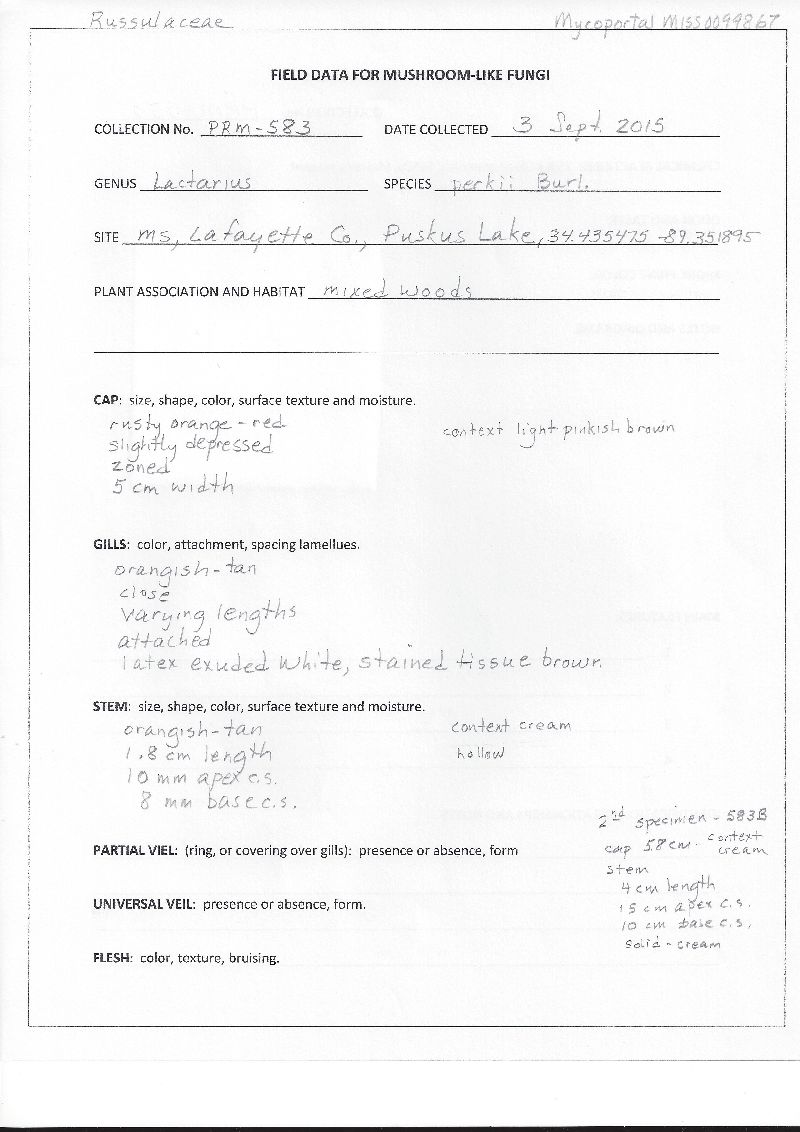 Russulaceae Mycoportal MISS0099867
FIELD DATA FOR MUSHROOM-LIKE FUNGI
COLLECTION No. PRM-583 DATE COLLECTED 3 Sept. 2015
GENUS Lactarius SPECIES peckii Burl.
SITE MS, Lafayette Co., Puskus Lake, 34.435475 -89.351895
PLANT ASSOCIATION AND HABITAT mixed woods
CAP: size, shape, color, surface texture and moisture.
rusty orange-red context light pinkish brown
slightly depressed
zoned
5 cm width
GILLS: color, attachment, spacing lamellues.
orangish-tan
close
varying lengths
attached
latex exuded white, stained tissue brown.
STEM: size, shape, color, surface texture and moisture.
orangish-tan context cream
1.8 cm length hollow
10 mm apex c.s.
8 mm base c.s.
2nd specimen - 583B
cap 5.8 cm - context cream
stem
4 cm length
15 cm apex c.s.
10 cm base c.s.
solid - cream
PARTIAL VIEL: (ring, or covering over gills): presence or absence, form
UNIVERSAL VEIL: presence or absence, form.
FLESH: color, texture, bruising.